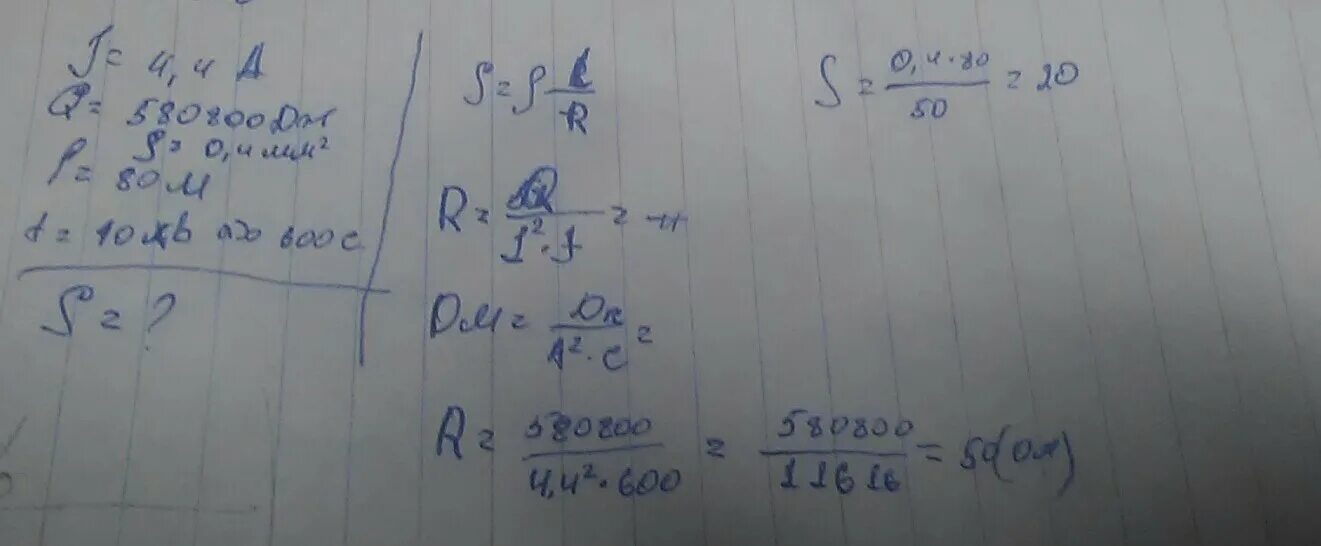 I = 4,4 А
Q = 580800 Дж
ρ = 0,4 мм²
l = 80 м
t = 10 хв або 600 с
S = ?
S = ρ l/R
R = Q/(I²·t) =
Ом = Дж/(А²·с) =
R = 580800/(4,4²·600) = 580800/11616 = 50 (Ом)
S = (0,4·80)/50 = 20